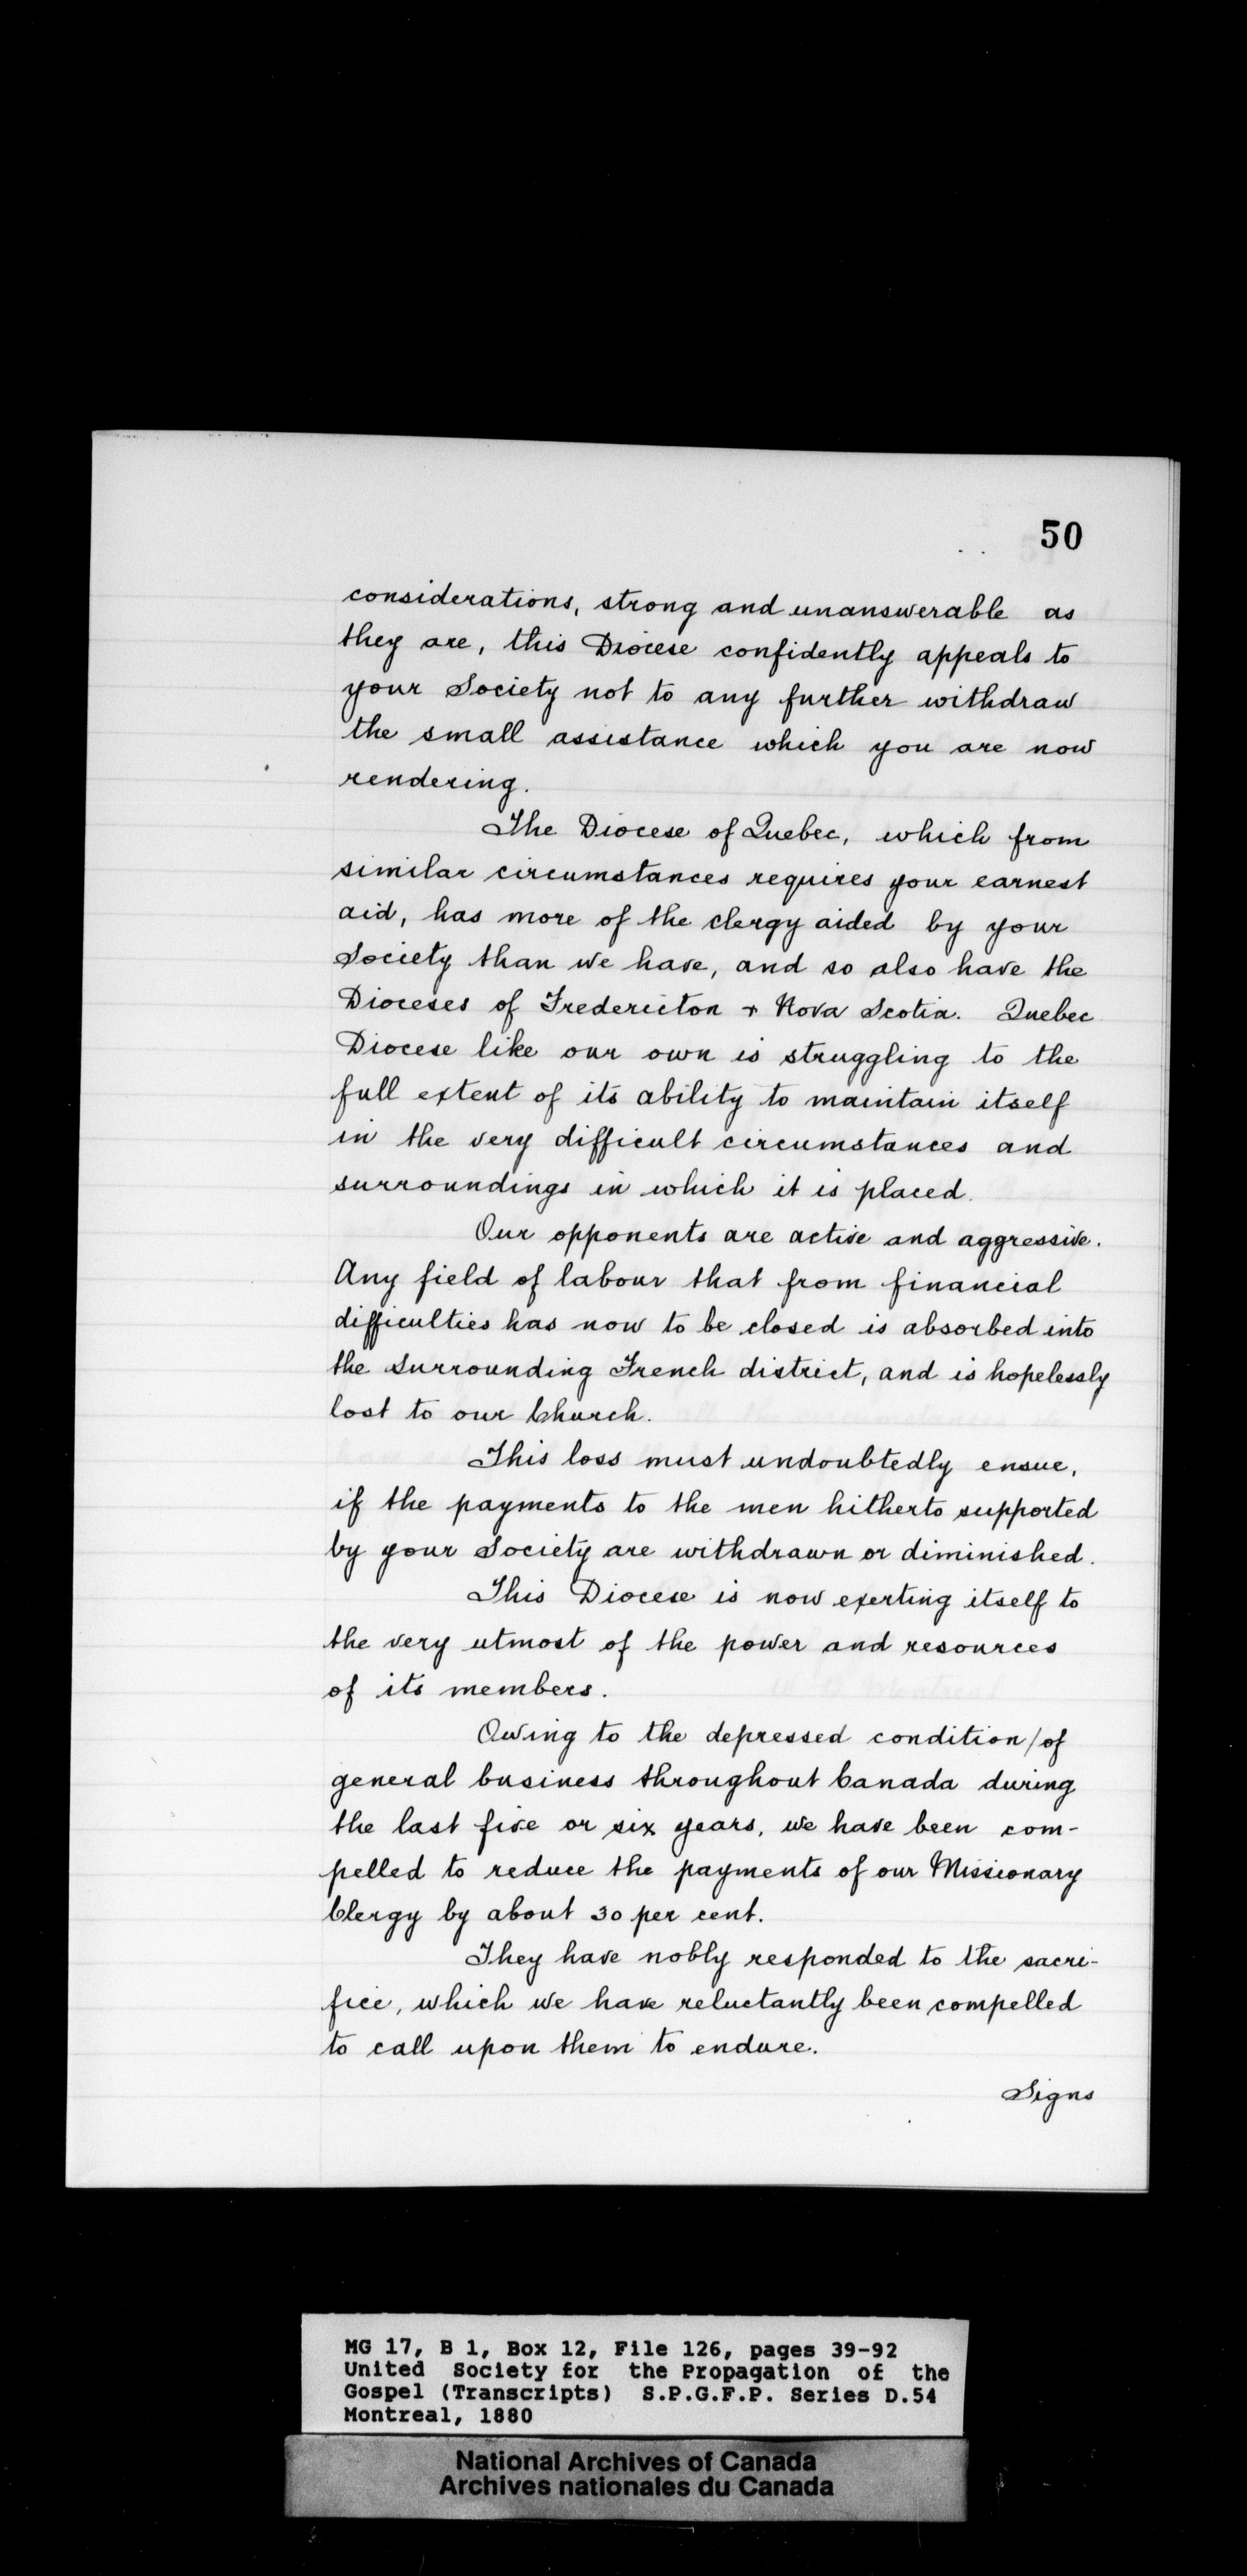 50
considerations, strong and unanswerable as
they are, this Diocese confidently appeals to
your Society not to any further withdraw
the small assistance which you are now
rendering.
The Diocese of Quebec, which from
similar circumstances requires your earnest
aid, has more of the clergy aided by your
Society than we have, and so also have the
Dioceses of Fredericton + Nova Scotia. Quebec
Diocese like our own is struggling to the
full extent of its ability to maintain itself
in the very difficult circumstances and
surroundings in which it is placed.
Our opponents are active and aggressive.
Any field of labour that from financial
difficulties has now to be closed is absorbed into
the surrounding French district, and is hopelessly
lost to our Church.
This loss must undoubtedly ensue,
if the payments to the men hitherto supported
by your Society are withdrawn or diminished.
This Diocese is now exerting itself to
the very utmost of the power and resources
of its members.
Owing to the depressed condition/of
general business throughout Canada during
the last five or six years, we have been com-
pelled to reduce the payments of our Missionary
Clergy by about 30 per cent.
They have nobly responded to the sacri-
fice, which we have reluctantly been compelled
to call upon them to endure.
Signs
MG 17, B 1, Box 12, File 126, pages 39-92
United Society for the Propagation of the
Gospel (Transcripts) S.P.G.F.P. Series D.54
Montreal, 1880
National Archives of Canada
Archives nationales du Canada